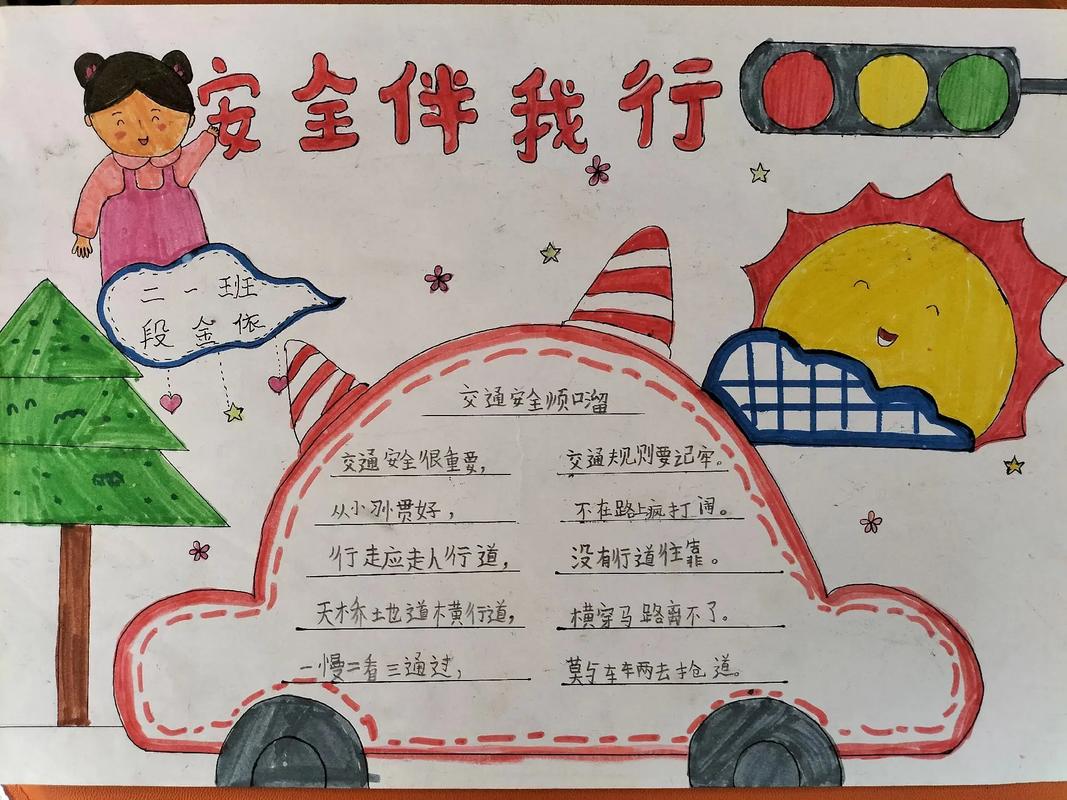 安全伴我行
二一班
段金依
交通安全顺口溜
交通安全很重要, 交通规则要记牢。
从小习贯好, 不在路上疯打闹。
行走应走人行道, 没有行道往靠。
天桥地道横行道, 横穿马路离不了。
一慢二看三通过, 莫与车辆去抢道。